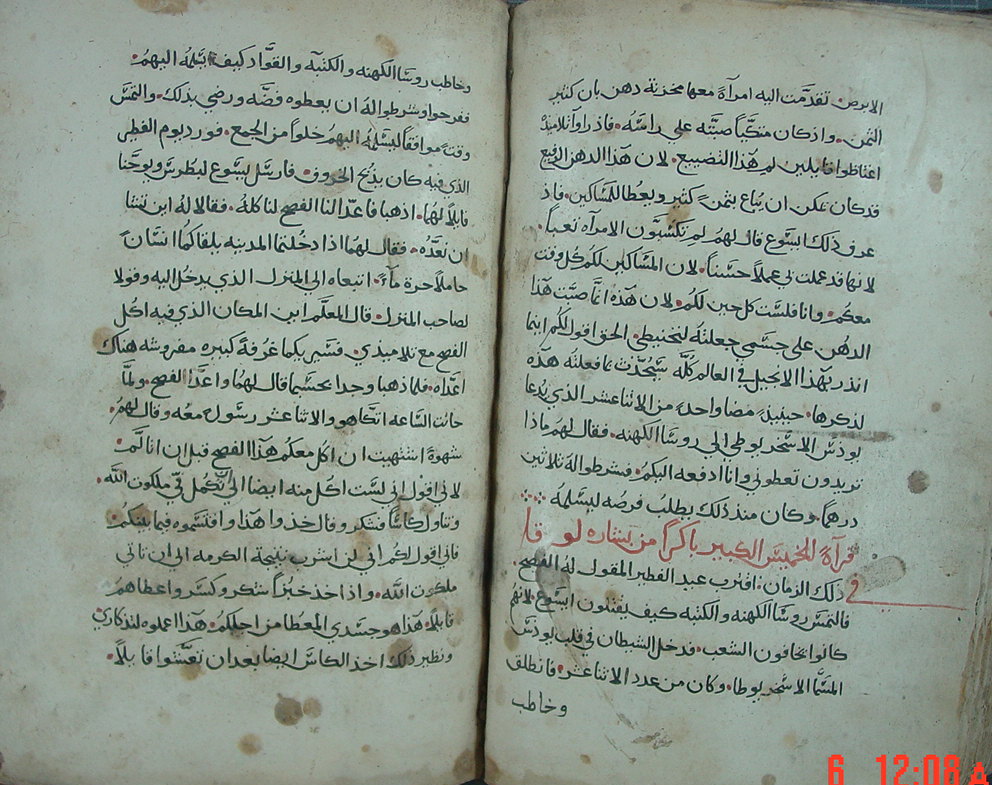 الابرص. تقدمت اليه امرآة معها مخزنة دهن بان كثير
الثمن. واذ كان متكياً صبته علي راسه. فاذ راوا تلاميذه
اغتاظوا قايلين لم هذا التضييع. لان هذا الدهن الرفيع
قد كان يمكن ان يباع بثمنٍ كثير ويعطا للمساكين. فاذ
عرف ذلك ايسوع قال لهم لم تكسبون الامرآه تعباً.
لانها قد عملت بي عملاً حسناً. لان المساكين لكم كل وقت
معكم. وانا فلست كل حين لكم. لان هذه انما صبت هذا
الدهن علي جسمي جعلته لتحنيطي. الحق اقول لكم اينما
انذر بهذا الانجيل في العالم كله سيحدث بما فعلته هذه
لذكرها. حينيذٍ مضا واحدٍ من الاثناعشر الذي يدعا
يودس الاسخريوطي الي روسا الكهنه. فقال لهم ماذا
تريدون تعطوني وانا ادفعه اليكم. فشرطوا له ثلاثين
درهماً. وكان منذ ذلك يطلب فرصه ليسلمه
قرآة الخميس الكبير باكراً من بشاره لوقا
في ذلك الزمان. اقترب عيد الفطير المقول له الفصح.
فالتمس روسا الكهنه والكتبه كيف يقتلون ايسوع لانهم
كانوا يخافون الشعب. فدخل الشيطان في قلب يودس
المسما الاسخريوطا. وكان من عدد الاثناعشر. فانطلق
وخاطب
وخاطب روسا الكهنه والكتبه والقواد كيف يسلمه اليهم.
ففرحوا وشرطوا له ان يعطوه فضه ورضي بذلك. والتمس
وقتاً موافقاً ليسلمه اليهم خلواً من الجمع. فورد يوم الفطير
الذي فيه كان يذبح الخروف. فارسل يسوع لبطرس ويوحنا
قايلاً لهما. اذهبا فاعدا لنا الفصح لناكله. فقالا له اين تشا
ان نعده. فقال لهما اذا دخلتما المدينه يلقاكما انسان
حاملاً جرة مآء. اتبعاه الي المنزل الذي يدخل اليه وقولا
لصاحب المنزل. قال المعلم اين المكان الذي فيه اكل
الفصح مع تلاميذي. فسيريكما غرفة كبيره مفروشه هناك
اعداه. فلما ذهبا وجدا بحسبما قال لهما واعدا الفصح. ولما
حانت الساعه اتكا هو والاثناعشر رسول معه وقال لهم
شهوة اشتهيت ان اكل معكم هذا الفصح قبل ان اتالم.
لاني اقول اني لست اكل منه ايضا الي ان تكمل في ملكوت الله.
وتناول كاساً فشكر وقال خذوا هذا واقتسموه فيما بينكم.
فاني اقول لكم اني لن اشرب نتيجة الكرمه الي ان تاتي
ملكوت الله. واذ اخذ خبزاً شكر وكسر واعطاهم
قايلاً. هذا هو جسدي المعطا من اجلكم. هذا اعملوه لتذكاري
ونظير ذلك اخذ الكاس ايضا بعد ان تعشوا قايلاً.
6 12:08 A